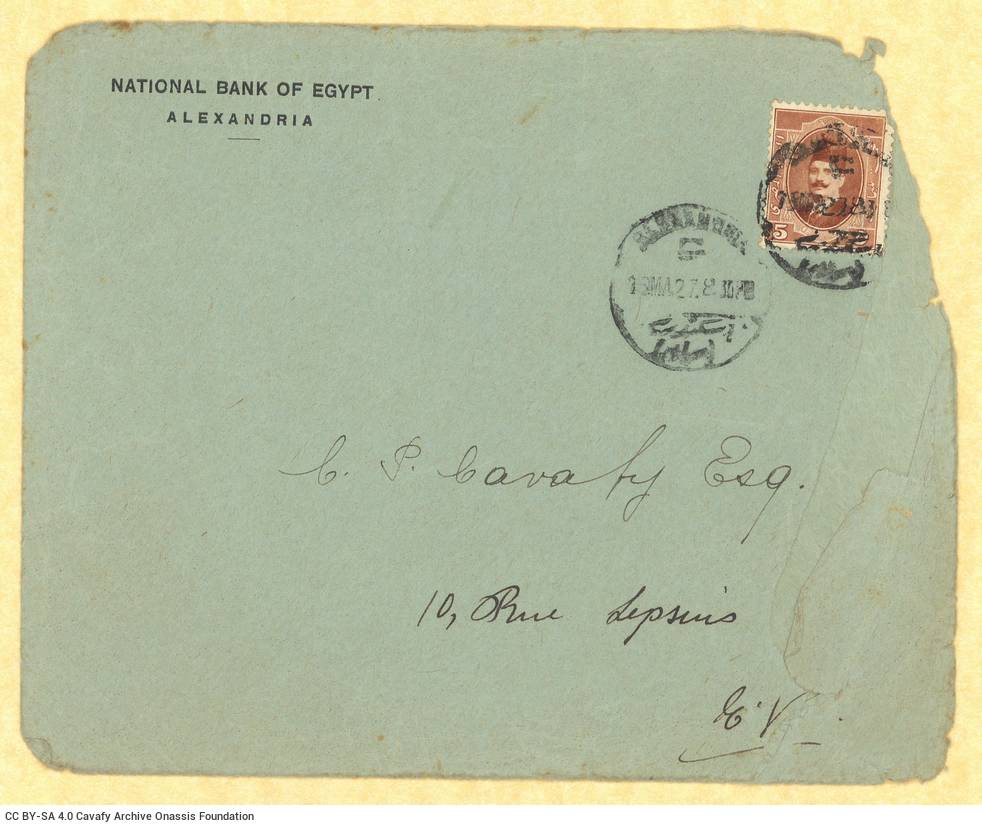 NATIONAL BANK OF EGYPT
ALEXANDRIA
5
ALEXANDRIA
MA.27.8 30 PM
C. P. Cavafy Esq.
10, Rue Lepsius
E.V.
CC BY-SA 4.0 Cavafy Archive Onassis Foundation